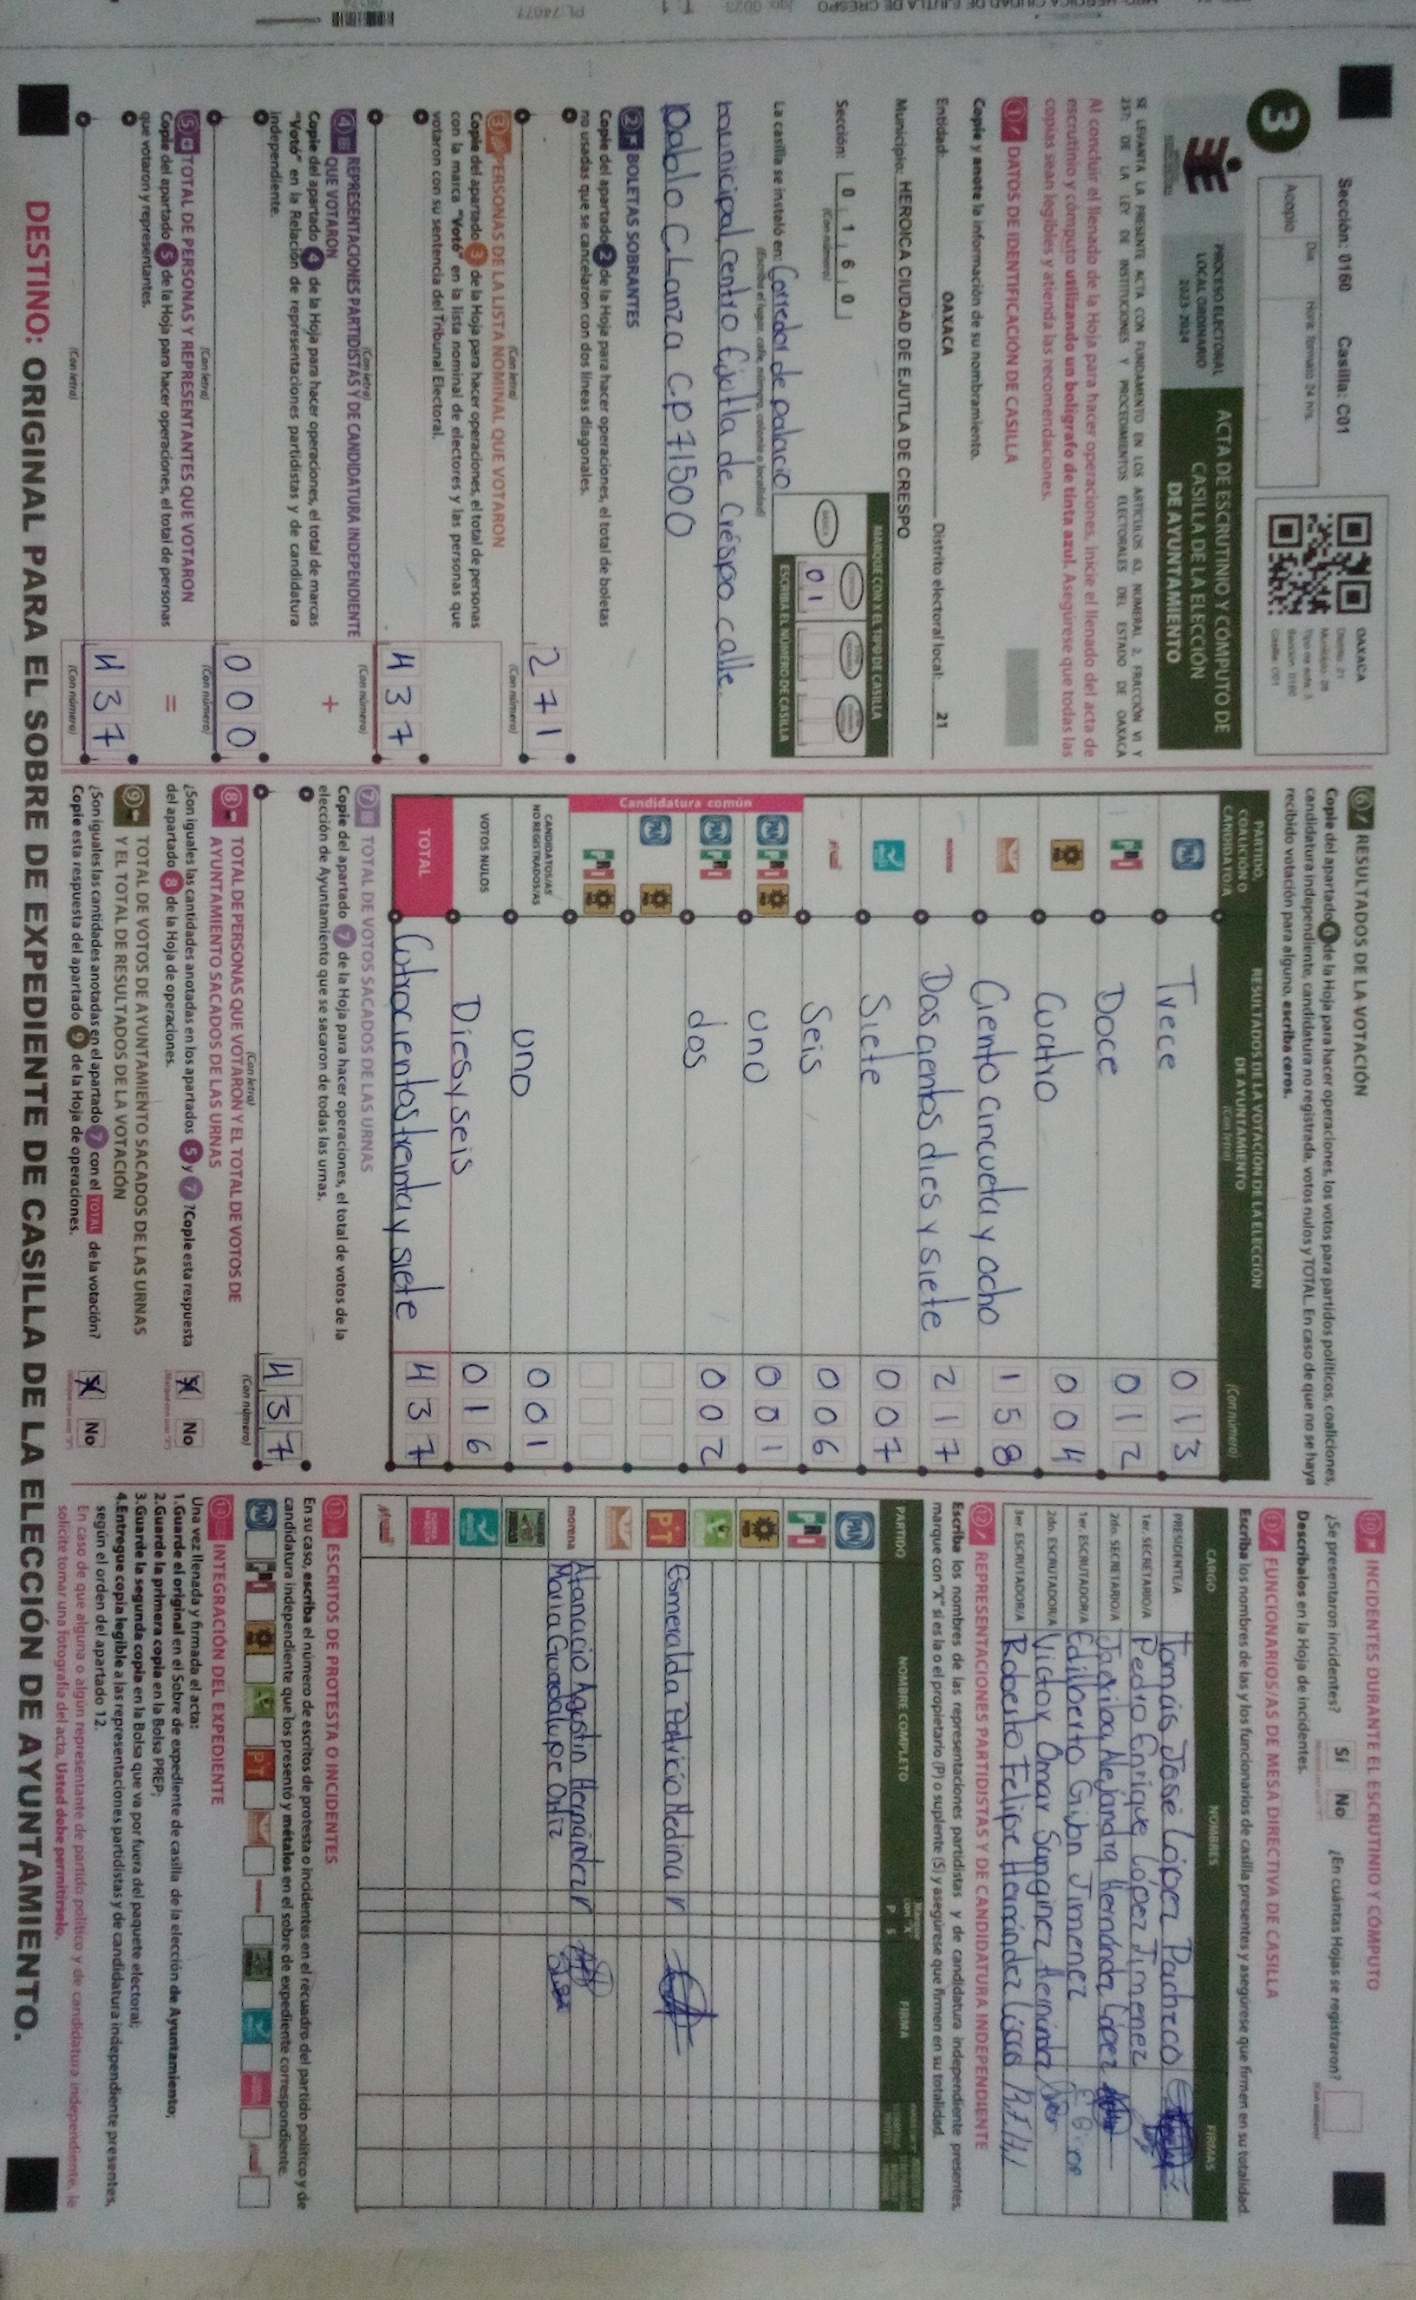 Sección: 0160 Casilla: C01
3
Acopio
Día
Hora: formato 24 hrs.
OAXACA
PROCESO ELECTORAL
LOCAL ORDINARIO
2023-2024
ACTA DE ESCRUTINIO Y CÓMPUTO DE
CASILLA DE LA ELECCIÓN
DE AYUNTAMIENTO
SE LEVANTA LA PRESENTE ACTA CON FUNDAMENTO EN LOS ARTÍCULOS 63, NUMERAL 2, FRACCIÓN VI Y
237; DE LA LEY DE INSTITUCIONES Y PROCEDIMIENTOS ELECTORALES DEL ESTADO DE OAXACA
Al concluir el llenado de la Hoja para hacer operaciones, inicie el llenado del acta de
escrutinio y cómputo utilizando un bolígrafo de tinta azul. Asegúrese que todas las
copias sean legibles y atienda las recomendaciones.
1 DATOS DE IDENTIFICACIÓN DE CASILLA
Copie y anote la información de su nombramiento.
Entidad: OAXACA Distrito electoral local: 21
Municipio: HEROICA CIUDAD DE EJUTLA DE CRESPO
Sección: 0 1 6 0
(Con número)
MARQUE CON X EL TIPO DE CASILLA
ESCRIBA EL NÚMERO DE CASILLA
0 1
La casilla se instaló en: Corredor de palacio
(Escriba el lugar, calle, número, colonia o localidad)
municipal centro Ejutla de Créspo calle
Pablo C Lanza C.P 71500
2 BOLETAS SOBRANTES
Copie del apartado 2 de la Hoja para hacer operaciones, el total de boletas
no usadas que se cancelaron con dos líneas diagonales.
2 7 1
(Con letra) (Con número)
3 PERSONAS DE LA LISTA NOMINAL QUE VOTARON
Copie del apartado 3 de la Hoja para hacer operaciones, el total de personas
con la marca "Votó" en la lista nominal de electores y las personas que
votaron con su sentencia del Tribunal Electoral.
4 3 7
(Con letra) (Con número)
4 REPRESENTACIONES PARTIDISTAS Y DE CANDIDATURA INDEPENDIENTE
QUE VOTARON
Copie del apartado 4 de la Hoja para hacer operaciones, el total de marcas
"Votó" en la Relación de representaciones partidistas y de candidatura
independiente.
+
0 0 0
(Con letra) (Con número)
5 TOTAL DE PERSONAS Y REPRESENTANTES QUE VOTARON
Copie del apartado 5 de la Hoja para hacer operaciones, el total de personas
que votaron y representantes.
=
4 3 7
(Con letra) (Con número)
6 RESULTADOS DE LA VOTACIÓN
Copie del apartado 6 de la Hoja para hacer operaciones, los votos para partidos políticos, coaliciones,
candidatura independiente, candidatura no registrada, votos nulos y TOTAL. En caso de que no se haya
recibido votación para alguno, escriba ceros.
PARTIDO,
COALICIÓN O
CANDIDATO/A
RESULTADOS DE LA VOTACIÓN DE LA ELECCIÓN
DE AYUNTAMIENTO
(Con letra) (Con número)
PAN Trece 0 1 3
PRI Doce 0 1 2
PRD Cuatro 0 0 4
Ciento cincueta y ocho 1 5 8
morena Dos cientos dies y siete 2 1 7
Siete 0 0 7
Seis 0 0 6
Candidatura común
PAN PRI PRD uno 0 0 1
PAN PRI dos 0 0 2
PAN PRD
PRI PRD
CANDIDATOS/AS
NO REGISTRADOS/AS uno 0 0 1
VOTOS NULOS Dies y seis 0 1 6
TOTAL Cotrocientos treinta y siete 4 3 7
7 TOTAL DE VOTOS SACADOS DE LAS URNAS
Copie del apartado 7 de la Hoja para hacer operaciones, el total de votos de la
elección de Ayuntamiento que se sacaron de todas las urnas.
4 3 7
(Con letra) (Con número)
8 TOTAL DE PERSONAS QUE VOTARON Y EL TOTAL DE VOTOS DE
AYUNTAMIENTO SACADOS DE LAS URNAS
¿Son iguales las cantidades anotadas en los apartados 5 y 7 ? Copie esta respuesta
del apartado 8 de la Hoja de operaciones.
X No
9 TOTAL DE VOTOS DE AYUNTAMIENTO SACADOS DE LAS URNAS
Y EL TOTAL DE RESULTADOS DE LA VOTACIÓN
¿Son iguales las cantidades anotadas en el apartado 7 con el TOTAL de la votación?
Copie esta respuesta del apartado 9 de la Hoja de operaciones.
X No
10 INCIDENTES DURANTE EL ESCRUTINIO Y CÓMPUTO
¿Se presentaron incidentes? Sí No ¿En cuántas Hojas se registraron?
Descríbalos en la Hoja de incidentes.
11 FUNCIONARIOS/AS DE MESA DIRECTIVA DE CASILLA
Escriba los nombres de las y los funcionarios de casilla presentes y asegúrese que firmen en su totalidad.
CARGO NOMBRES FIRMAS
PRESIDENTE/A Tomás José López Pacheco
1er. SECRETARIO/A Pedro Enrique López Jimenez
2do. SECRETARIO/A Alejandra Hernández López
1er. ESCRUTADOR/A Edilberto Gijon Jimenez
2do. ESCRUTADOR/A Victor Omar Sanginez Hernández
3er. ESCRUTADOR/A Roberto Felipe Hernández
12 REPRESENTACIONES PARTIDISTAS Y DE CANDIDATURA INDEPENDIENTE
Escriba los nombres de las representaciones partidistas y de candidatura independiente presentes,
marque con "X" si es la o el propietario (P) o suplente (S) y asegúrese que firmen en su totalidad.
PARTIDO NOMBRE COMPLETO P S FIRMA
PAN
PRI
PRD
PT Esmeralda Patricio Medina
morena Atanacio Agustin Hernández
Maria Guadalupe Ortiz
13 ESCRITOS DE PROTESTA O INCIDENTES
En su caso, escriba el número de escritos de protesta o incidentes en el recuadro del partido político y de
candidatura independiente que los presentó y métalos en el sobre de expediente correspondiente.
INTEGRACIÓN DEL EXPEDIENTE
Una vez llenada y firmada el acta:
1.Guarde el original en el Sobre de expediente de casilla de la elección de Ayuntamiento;
2.Guarde la primera copia en la Bolsa PREP;
3.Guarde la segunda copia en la Bolsa que va por fuera del paquete electoral;
4.Entregue copia legible a las representaciones partidistas y de candidatura independiente presentes,
según el orden del apartado 12.
En caso de que alguna o algún representante de partido político y de candidatura independiente, le
solicite tomar una fotografía del acta, Usted debe permitírselo.
DESTINO: ORIGINAL PARA EL SOBRE DE EXPEDIENTE DE CASILLA DE LA ELECCIÓN DE AYUNTAMIENTO.